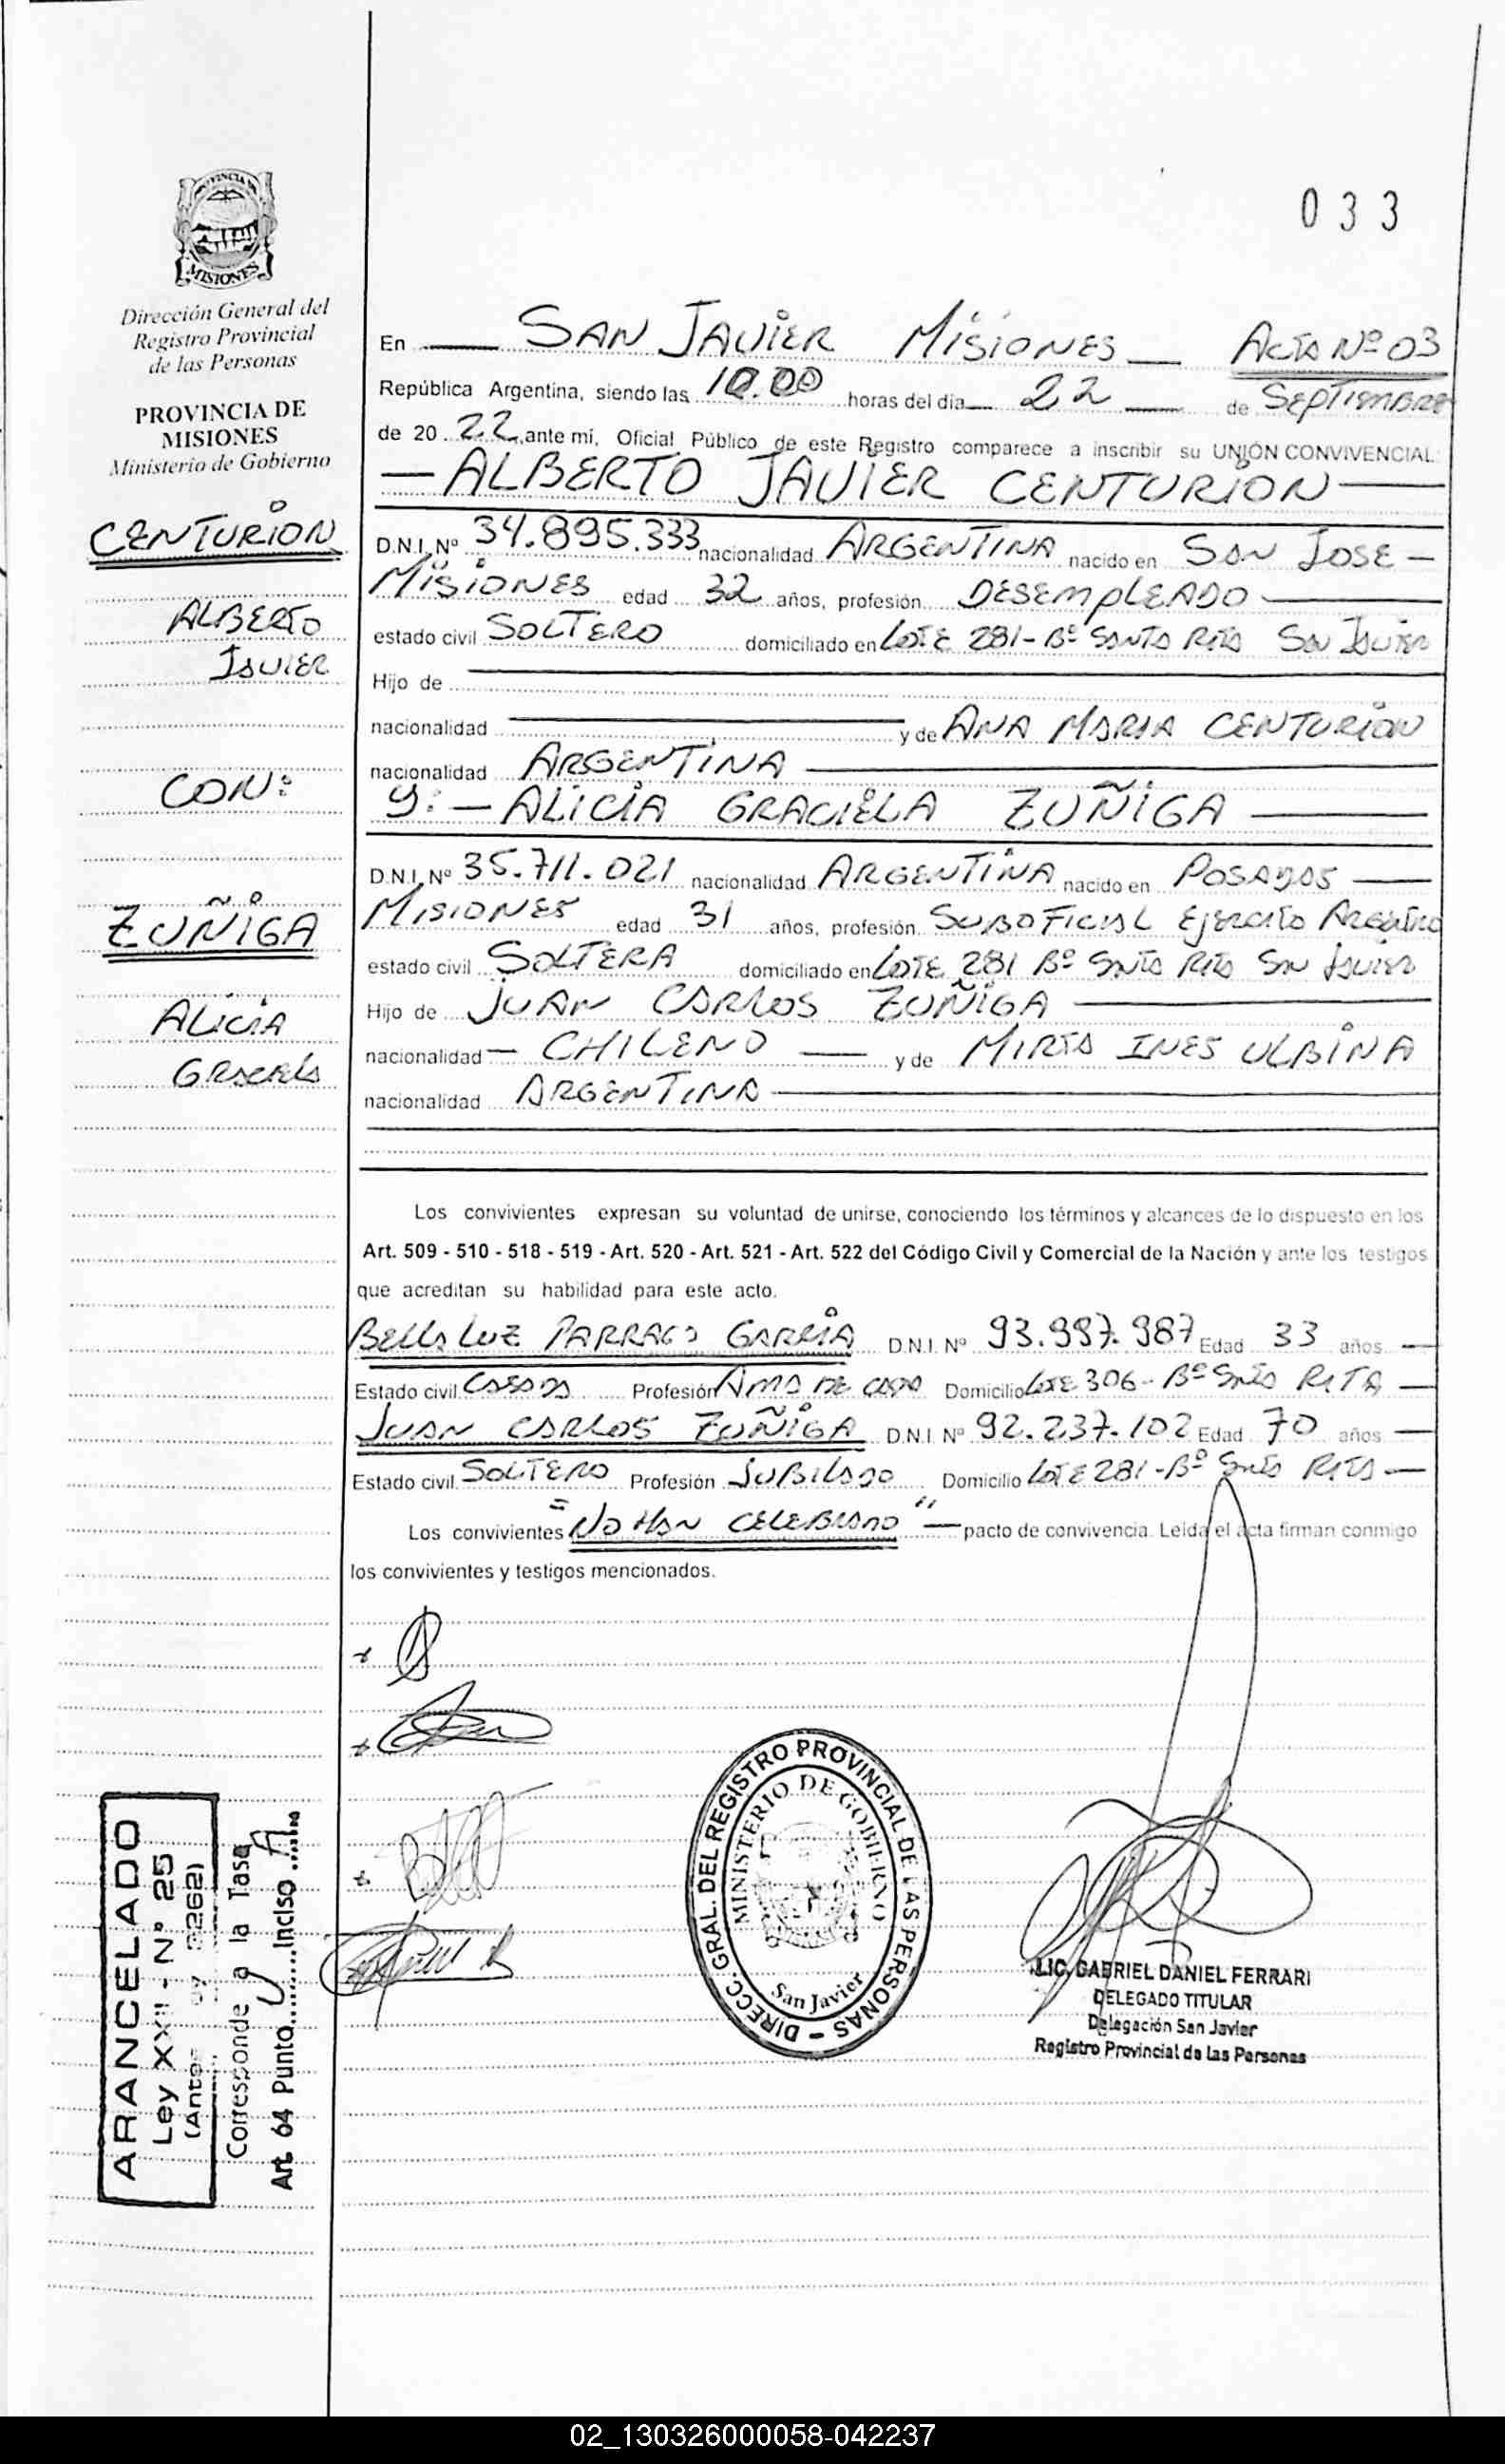 033
PROVINCIA DE
MISIONES
Dirección General del
Registro Provincial
de las Personas
PROVINCIA DE
MISIONES
Ministerio de Gobierno
CENTURION
ALBERTO
JAVIER
CON:
ZUÑIGA
ALICIA
GRACIELA
En SAN JAVIER MISIONES ACTA Nº 03
República Argentina, siendo las 10.00 horas del día 22 de SEPTIEMBRE
de 20 22, ante mi, Oficial Público de este Registro comparece a inscribir su UNIÓN CONVIVENCIAL:
— ALBERTO JAVIER CENTURION —
D.N.I. Nº 34.895.333 nacionalidad ARGENTINA nacido en SAN JOSE —
MISIONES edad 32 años, profesión DESEMPLEADO
estado civil SOLTERO domiciliado en LOTE 281 - Bº SANTA RITA SAN JAVIER
Hijo de
nacionalidad y de ANA MARIA CENTURION
nacionalidad ARGENTINA
y: — ALICIA GRACIELA ZUÑIGA —
D.N.I. Nº 35.711.021 nacionalidad ARGENTINA nacido en POSADAS —
MISIONES edad 31 años, profesión SUBOFICIAL EJERCITO ARGENTINO
estado civil SOLTERA domiciliado en LOTE 281 Bº SANTA RITA SAN JAVIER
Hijo de JUAN CARLOS ZUÑIGA
nacionalidad — CHILENO — y de MIRTA INES ULBINA
nacionalidad ARGENTINA
Los convivientes expresan su voluntad de unirse, conociendo los términos y alcances de lo dispuesto en los
Art. 509 - 510 - 518 - 519 - Art. 520 - Art. 521 - Art. 522 del Código Civil y Comercial de la Nación y ante los testigos
que acreditan su habilidad para este acto.
BELLA LUZ PARRAGA GARCIA D.N.I. Nº 93.997.987 Edad 33 años —
Estado civil CASADA Profesión AMA DE CASA Domicilio LOTE 306 - Bº SANTA RITA —
JUAN CARLOS ZUÑIGA D.N.I. Nº 92.237.102 Edad 70 años —
Estado civil SOLTERO Profesión JUBILADO Domicilio LOTE 281 - Bº SANTA RITA —
Los convivientes "NO HAN CELEBRADO" — pacto de convivencia. Leída el acta firman conmigo
los convivientes y testigos mencionados.
ARANCELADO
Ley XXII - Nº 25
(Antes 3262)
Corresponde a la Tasa
Art. 64 Punto Inciso A
DIRECC. GRAL. DEL REGISTRO PROVINCIAL DE LAS PERSONAS
MINISTERIO DE GOBIERNO
San Javier
LIC. GABRIEL DANIEL FERRARI
DELEGADO TITULAR
Delegación San Javier
Registro Provincial de las Personas
02_130326000058-042237